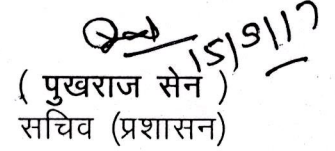 15/9/17
( पुखराज सेन )
सचिव (प्रशासन)